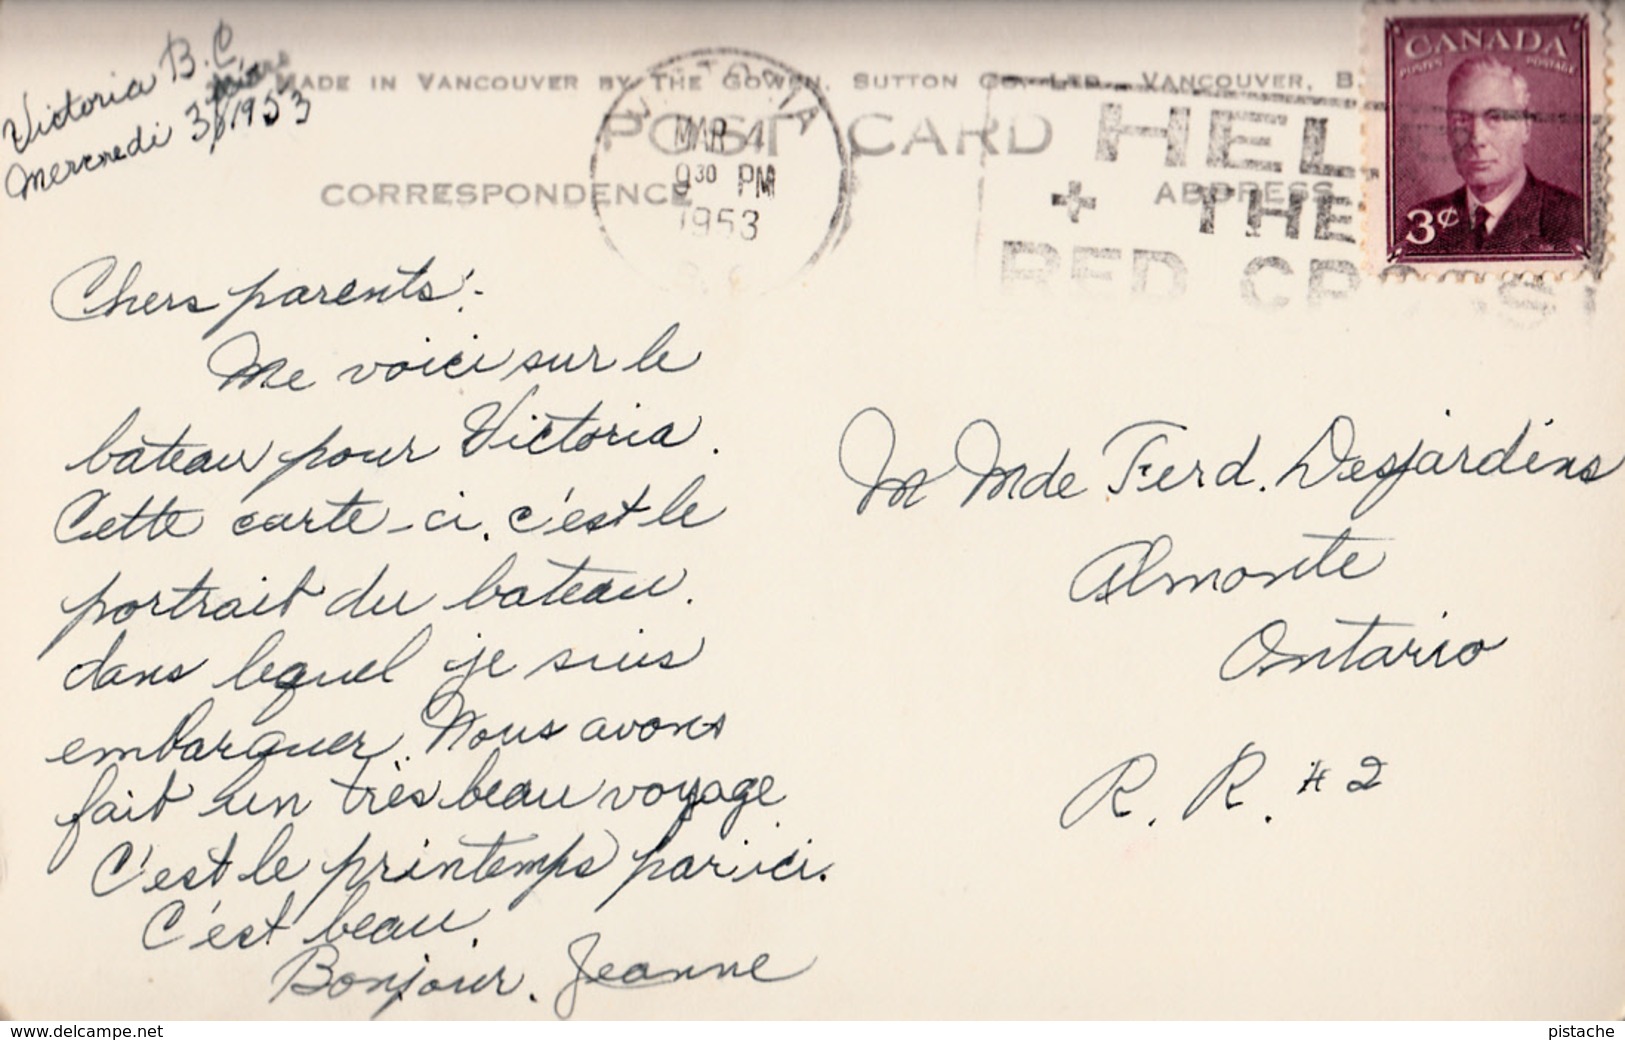 Victoria B.C.
Mercredi 3 mars 1953
MADE IN VANCOUVER BY THE GOWEN, SUTTON CO. LTD. VANCOUVER, B.
POST CARD
CORRESPONDENCE
ADDRESS
VICTORIA
MAR 4
9 30 PM
1953
HEL
+ THE
RED CROSS
CANADA
POSTES POSTAGE
3¢
Chers parents:-
Me voici sur le
bateau pour Victoria.
Cette carte-ci, c'est le
portrait du bateau.
dans lequel je suis
embarquer. Nous avons
fait un très beau voyage
C'est le printemps par ici.
C'est beau.
Bonjour. Jeanne
M Mde Ferd. Desjardins
Almonte
Ontario
R. R. #2
www.delcampe.net
pistache